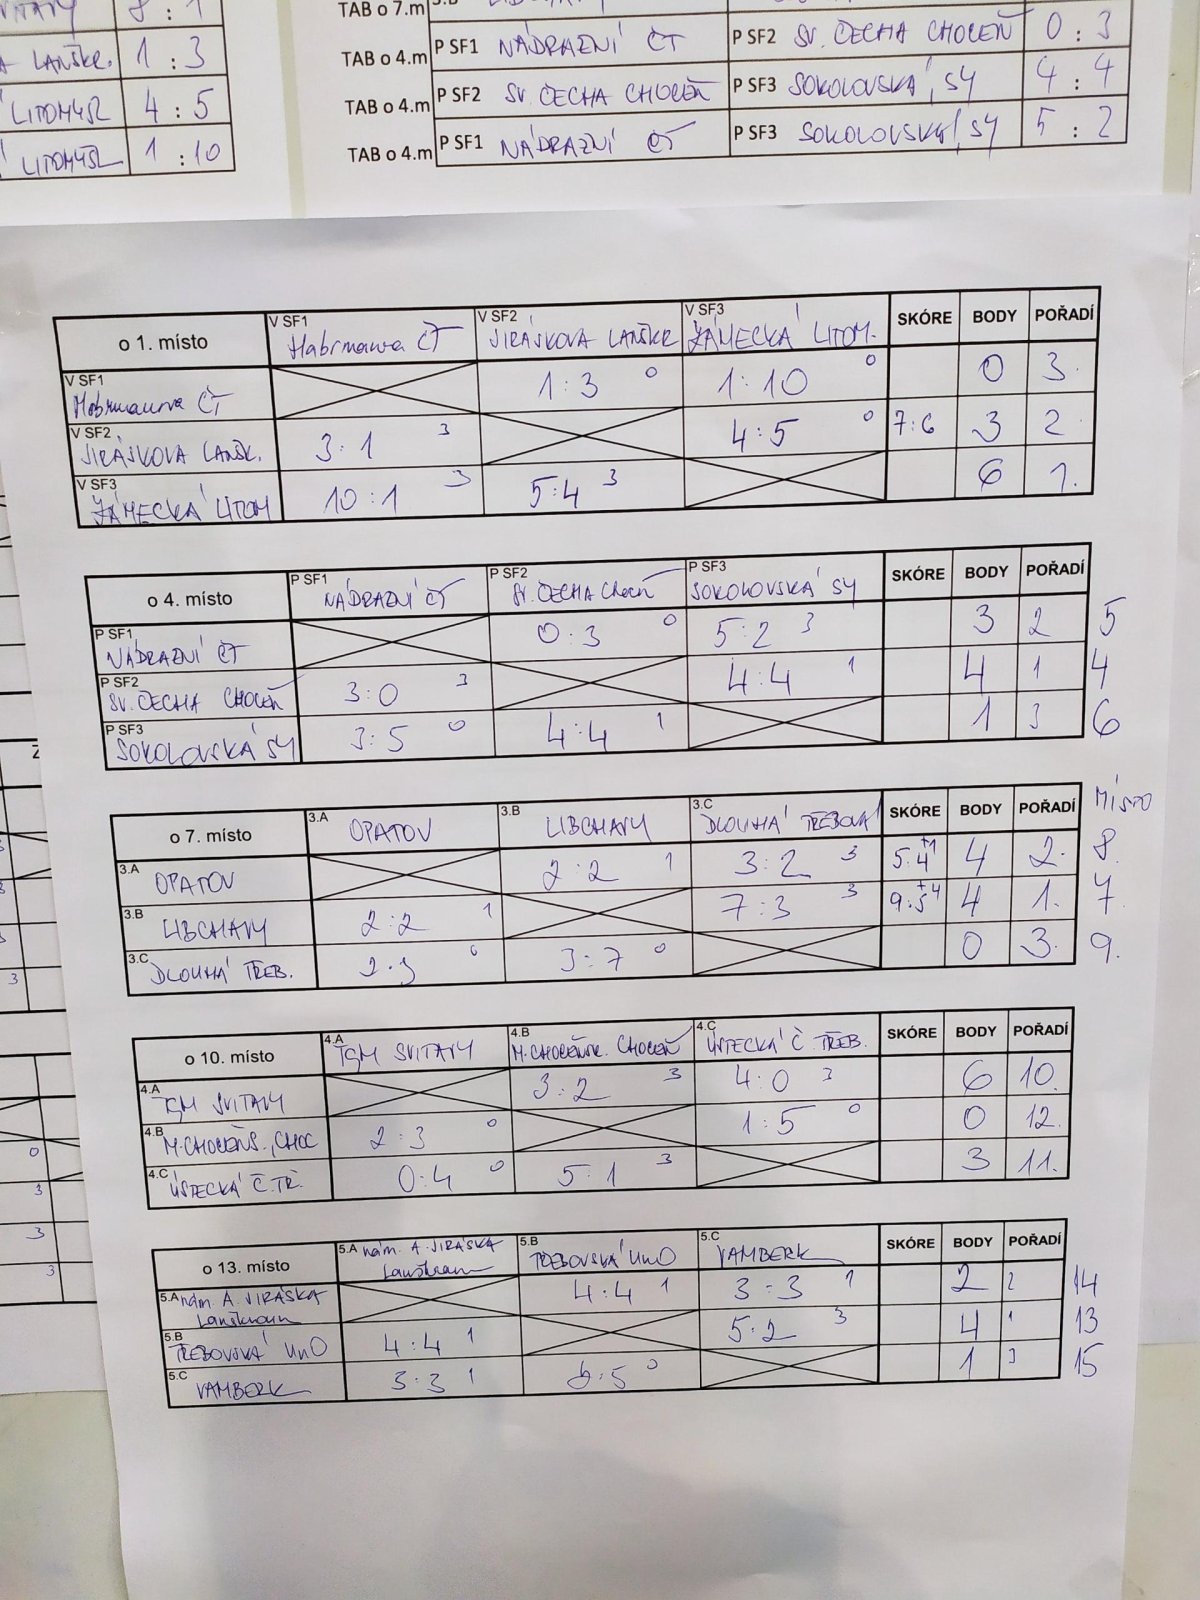 SVITAVY 8 : 1
LANŠKR. 1 : 3
LITOMYŠL 4 : 5
LITOMYŠL 1 : 10
TAB o 7.m
TAB o 4.m P SF1 NÁDRAZNÍ ČT P SF2 SV. ČECHA CHOCEŇ 0 : 3
TAB o 4.m P SF2 SV. ČECHA CHOCEŇ P SF3 SOKOLOVSKÁ, SY 4 : 4
TAB o 4.m P SF1 NÁDRAZNÍ ČT P SF3 SOKOLOVSKÁ, SY 5 : 2
o 1. místo V SF1 Habrmanova ČT V SF2 JIRÁSKOVA LANŠKR V SF3 ZÁMECKÁ LITOM. SKÓRE BODY POŘADÍ
V SF1 Habrmanova ČT 1:3 0 1:10 0 0 3.
V SF2 JIRÁSKOVA LANŠK. 3:1 3 4:5 0 7:6 3 2.
V SF3 ZÁMECKÁ LITOM 10:1 3 5:4 3 6 1.
o 4. místo P SF1 NÁDRAZNÍ ČT P SF2 SV. ČECHA Choceň P SF3 SOKOLOVSKÁ SY SKÓRE BODY POŘADÍ
P SF1 NÁDRAZNÍ ČT 0:3 0 5:2 3 3 2 5
P SF2 SV. ČECHA CHOCEŇ 3:0 3 4:4 1 4 1 4
P SF3 SOKOLOVSKÁ SY 3:5 0 4:4 1 1 3 6
o 7. místo 3.A OPATOV 3.B LIBCHAVY 3.C DLOUHÁ TŘEBOVÁ SKÓRE BODY POŘADÍ MÍSTO
3.A OPATOV 2:2 1 3:2 3 5:4 +1 4 2. 8.
3.B LIBCHAVY 2:2 1 7:3 3 9:5 +4 4 1. 7.
3.C DLOUHÁ TŘEB. 2:3 0 3:7 0 0 3. 9.
o 10. místo 4.A TGM SVITAVY 4.B M.CHOCEŇSK. CHOCEŇ 4.C ÚSTECKÁ Č. TŘEB. SKÓRE BODY POŘADÍ
4.A TGM SVITAVY 3:2 3 4:0 3 6 10.
4.B M.CHOCEŇS., CHOC 2:3 0 1:5 0 0 12.
4.C ÚSTECKÁ Č.TŘ. 0:4 0 5:1 3 3 11.
o 13. místo 5.A nám. A. JIRÁSKA Lanškroun 5.B TŘEBOVSKÁ UnO 5.C VAMBERK SKÓRE BODY POŘADÍ
5.A nám. A. JIRÁSKA Lanškroun 4:4 1 3:3 1 2 2 14
5.B TŘEBOVSKÁ UnO 4:4 1 5:2 3 4 1 13
5.C VAMBERK 3:3 1 :5 0 1 3 15